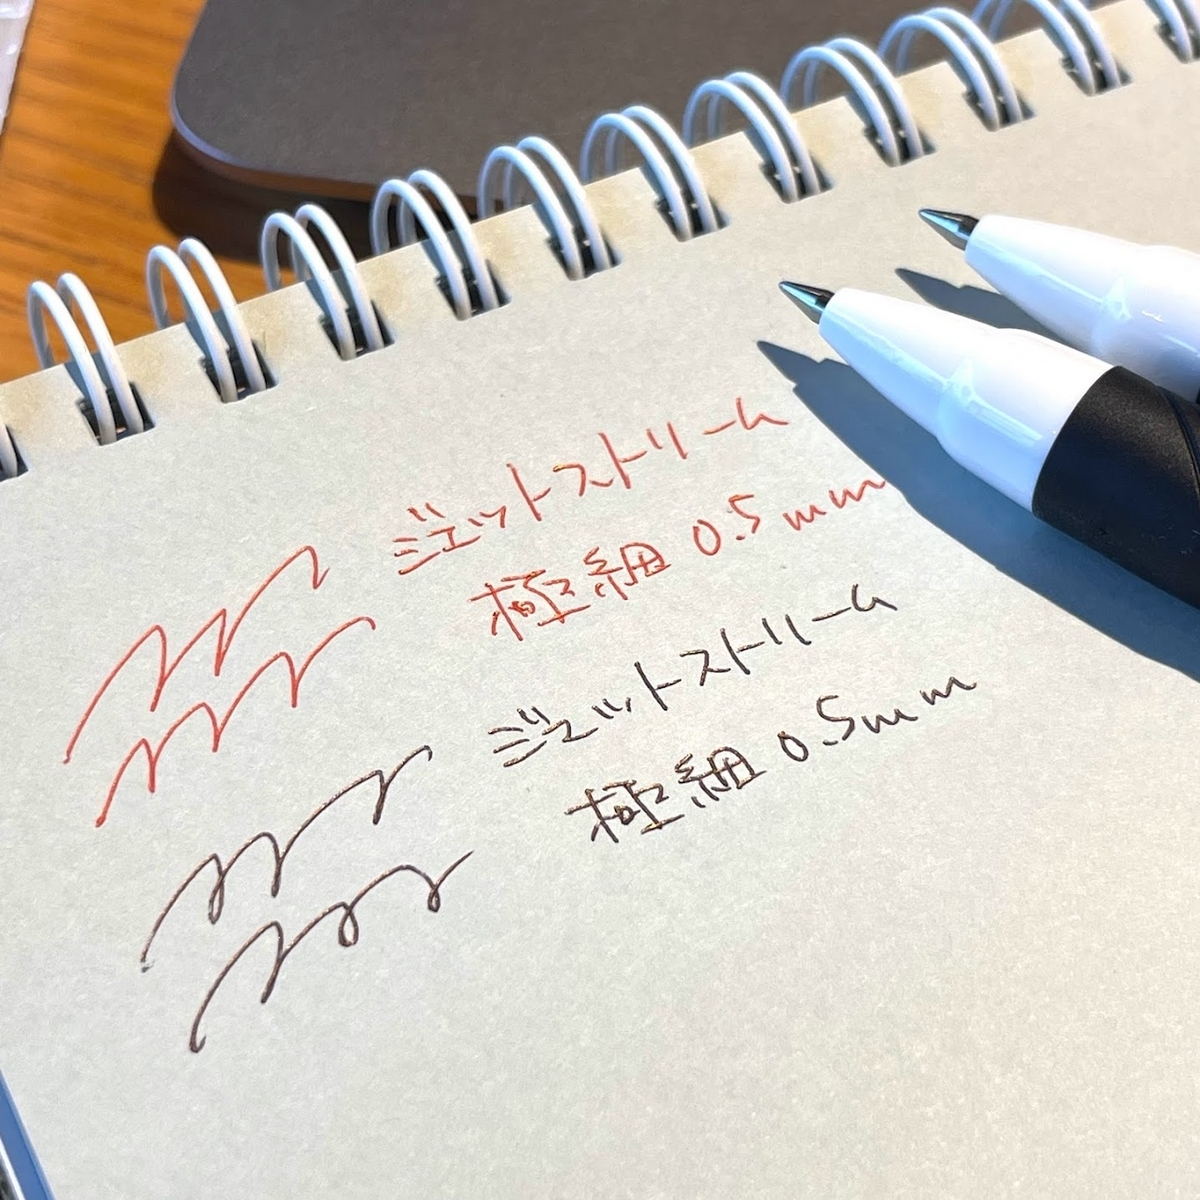 ジェットストリーム
極細 0.5mm
ジェットストリーム
極細 0.5mm